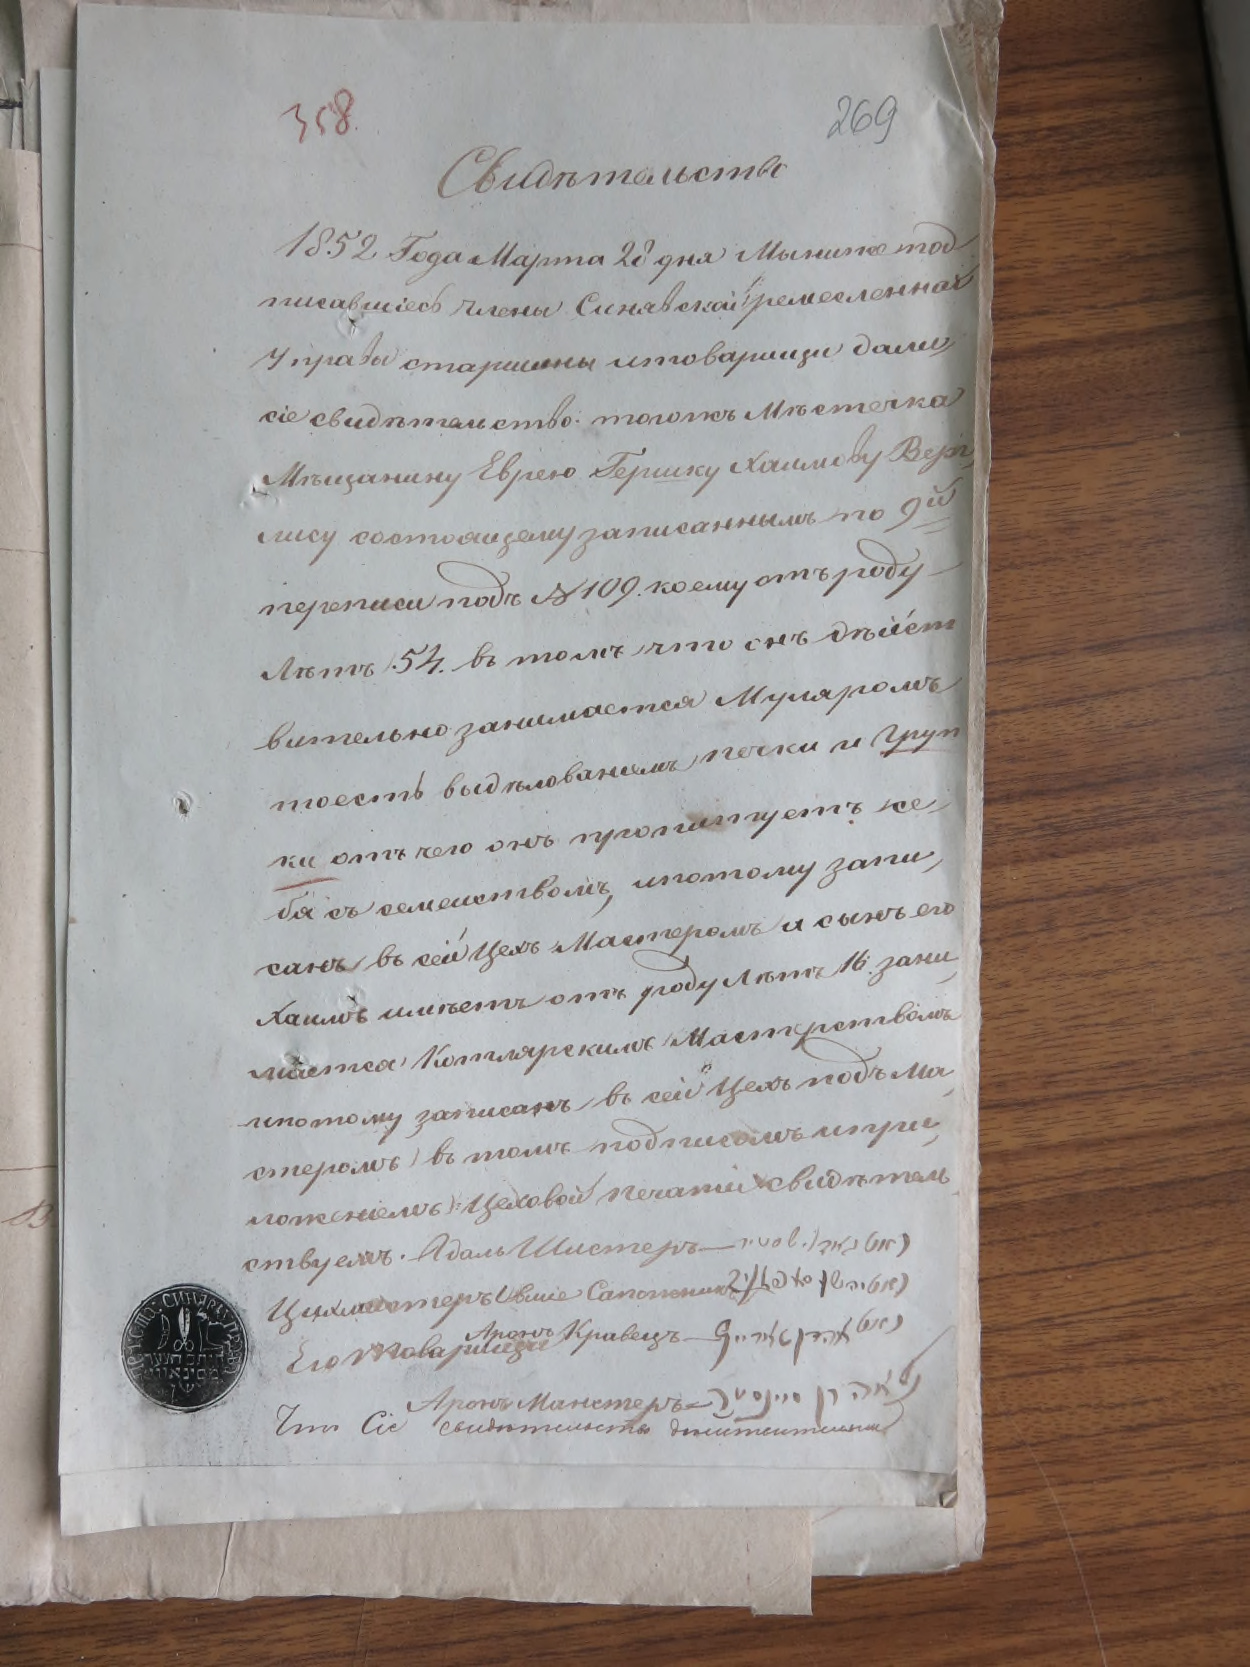 358.
269
Свидѣтельство
1852 Года Марта 28 дня Мынижепод
писавшіесь члены Синявской ремесленной
Управы старшины итоварищи дали
сіе свидѣтельство тогожъ Мѣстечка
Мѣщанину Еврею Гершку Хаимову Верг,
лису состоящему записаннымъ по 9й
переписи подъ № 109. коему отъ роду
Лѣтъ 54. въ томъ что онъ дѣйст
вительно занимается Муляромъ
тоесть выдѣлованіемъ печки и Груп
ки отъ чего онъ пропитуетъ се,
бя съ семействомъ, ипотому запи,
санъ въ сей Цехъ Мастеромъ и сынъ его
Хаимъ имѣетъ отъ роду Лѣтъ 16. зани,
мается Котлярскимъ Мастерствомъ
ипотому записанъ въ сей Цехъ подъ Ма,
стеромъ въ томъ подписомъ ипри,
ложеніемъ Цеховой печати свидѣтель
ствуемъ. Шистеръ
Цихмистеръ Сапожникъ
Аронъ Кравецъ
Его товарищи
Аронъ
Что Сіе свидѣтельство дѣйствительно